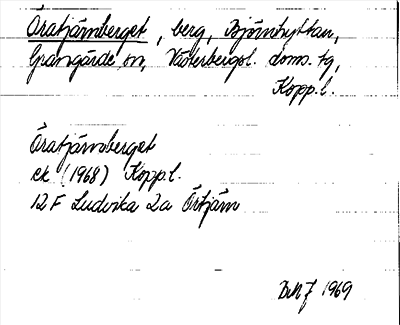 Öratjärnberget, berg, Björnhyttan,
Grangärde sn, Västerbergsl. doms. tg,
Kopp.l.
Öratjärnberget
ek (1968) Kopp.l.
12 F Ludvika 2a Örtjärn
1969